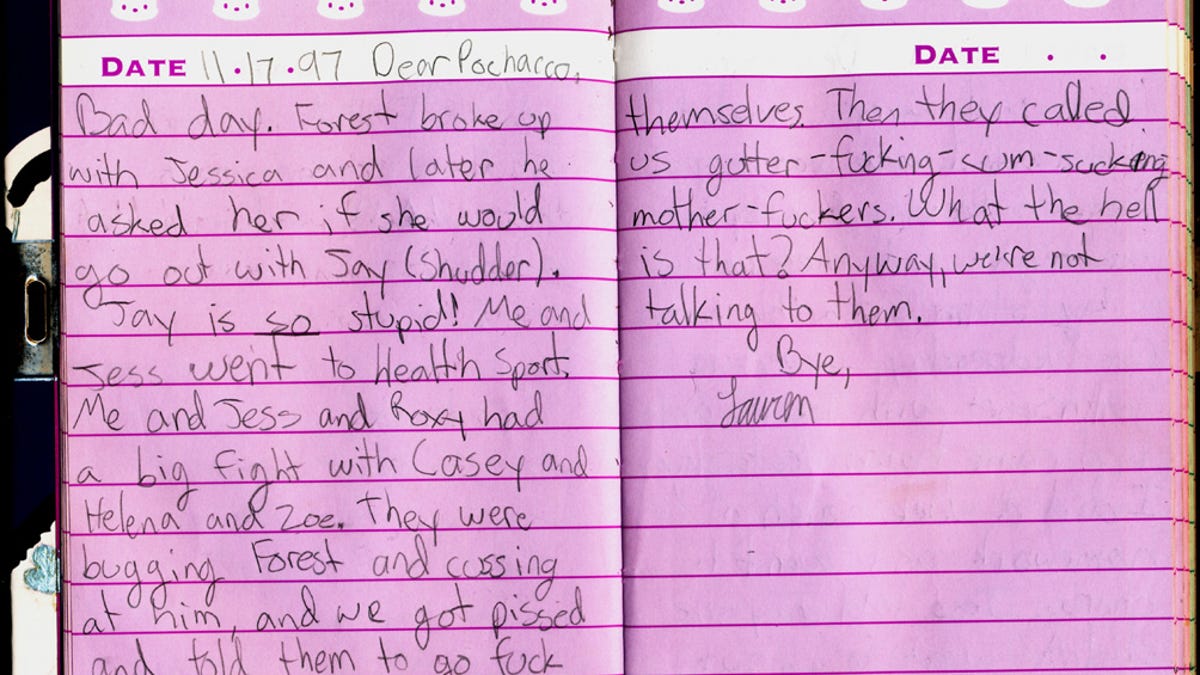 DATE 11.17.97 Dear Pochacco,
Bad day. Forest broke up
with Jessica and later he
asked her if she would
go out with Jay (shudder).
Jay is so stupid! Me and
Jess went to Health Sport.
Me and Jess and Roxy had
a big fight with Casey and
Helena and Zoe. They were
bugging Forest and cussing
at him, and we got pissed
and told them to go fuck
DATE . .
themselves. Then they called
us gutter-fucking-cum-sucking
mother-fuckers. What the hell
is that? Anyway, we're not
talking to them.
Bye,
Lauren